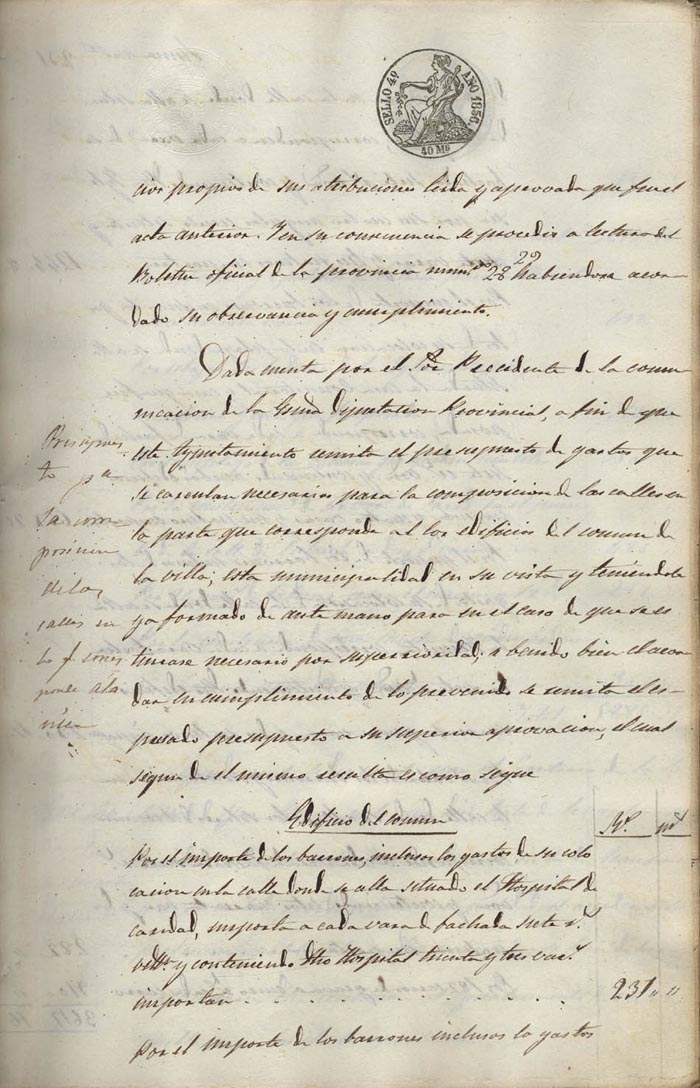 SELLO 4º AÑO 1850.
40 Ms
cios propios de sus atribuciones leida y aprovada que fue el
acta anterior. Y en su consecuencia se procedió a lectura del
Boletin oficial de la provincia numº 28 29 habiendose acor
dado su observancia y cumplimiento.
Dada cuenta por el Sor Precidente de la comu
nicacion de la Exma Diputation Provincial, a fin de que
este Ayuntamiento remita el presupuesto de gastos que
se carculan necesarios para la composicion de las calles en
la parte que corresponde al los edificios del comun de
la villa; esta municipalidad en su vista y teniendole
ya formado de ante mano para en el caso de que se es
timase necesario por superioridad, a benido bien el acor
dar en cumplimiento de lo prevenido se remita el es
presado presupuesto a su superior aprovacion, el cual
segun de el mismo resulta es como sigue
Presupues
to pa
la com
posicion
de las
calles en
lo q. corres
ponde a la
villa
Edificio del comun
Rs. ms
Por el importe de los barrones, inclusos los gastos de su colo
cacion en la calle donde se alla situado el Hospital de
caridad, importa a cada vara de fachada siete rs
vellon y conteniendo dho Hospital treinta y tres vars
importan . . . . . . . . 231 " "
Por el importe de los barrones inclusos lo gastos